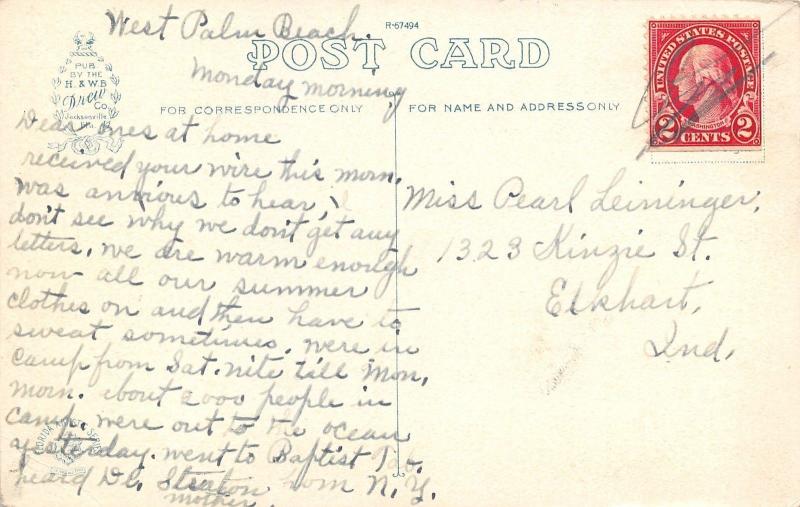 West Palm Beach.
R-57494
POST CARD
Monday morning
PUB
BY THE
H. & W.B.
Drew
Co.
Jacksonville
Fla.
FOR CORRESPONDENCE ONLY
FOR NAME AND ADDRESS ONLY
UNITED STATES POSTAGE
WASHINGTON
2 CENTS 2
Dear ones at home
received your wire this morn.
was anxious to hear, I
don't see why we don't get any
letters. we are warm enough
now all our summer
clothes on and then have to
sweat sometimes. were in
camp from Sat. nite till Mon,
morn. about 2000 people in
camp. were out to the ocean
yesterday. went to Baptist Tab.
heard Dr. Straton from N.Y.
mother.
Miss Pearl Leininger,
1323 Kinzie St.
Elkhart,
Ind.
FLORIDA SERIES